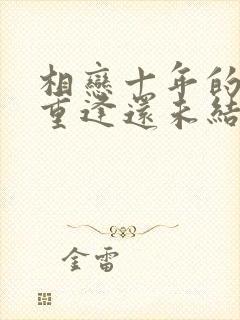 相戀十年的
重逢還未結
金雷